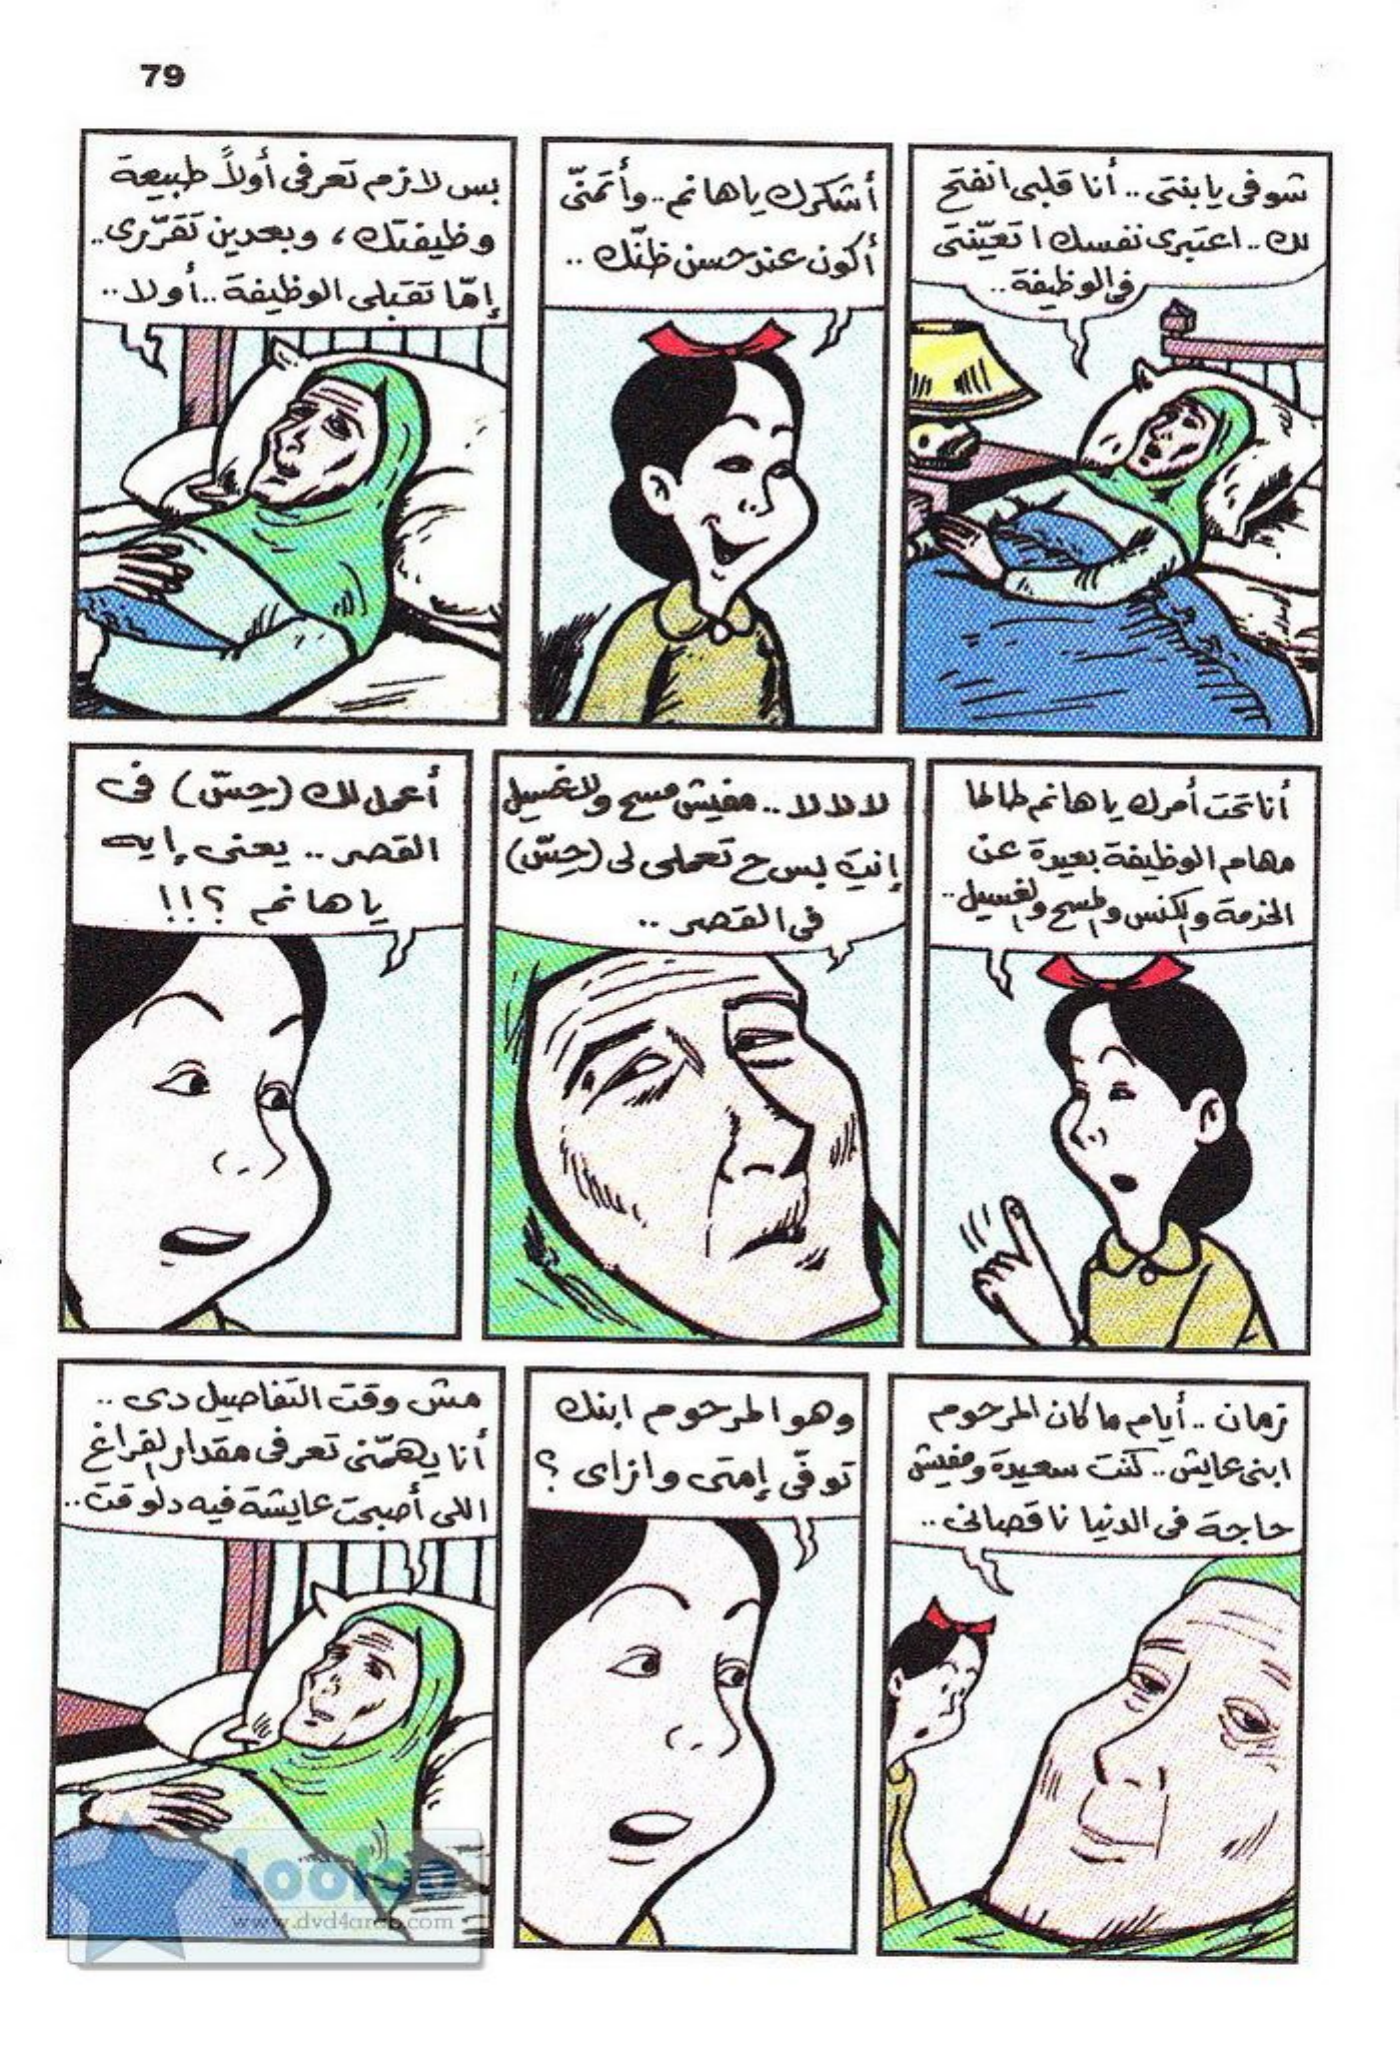 79
شوفى يا بنتى .. أنا قلبى اتفتح
لك .. اعتبرى نفسك اتعيّنتى
فى الوظيفة ..
أشكرك يا هانم .. وأتمنّى
أكون عند حسن ظنّك ..
بس لازم تعرفى أولاً طبيعة
وظيفتك ، وبعدين تقرّرى ..
إمّا تقبلى الوظيفة .. أولا ..
أنا تحت أمرك يا هانم طالما
مهام الوظيفة بعيدة عن
الخدمة والكنس والمسح والغسيل ..
لا لا لا .. مفيش مسح ولا غسيل
إنتِ بس ح تعملى لى (حِسّ)
فى القصر ..
أعمل لك (حِسّ) فى
القصر .. يعنى إيه
يا هانم ؟!!
زمان .. أيام ما كان المرحوم
ابنى عايش .. كنت سعيدة ومفيش
حاجة فى الدنيا ناقصانى ..
وهو المرحوم ابنك
توفّى إمتى وازاى ؟
مش وقت التفاصيل دى ..
أنا يهمّنى تعرفى مقدار الفراغ
اللى أصبحت عايشة فيه دلوقت ..
www.dvd4arab.com